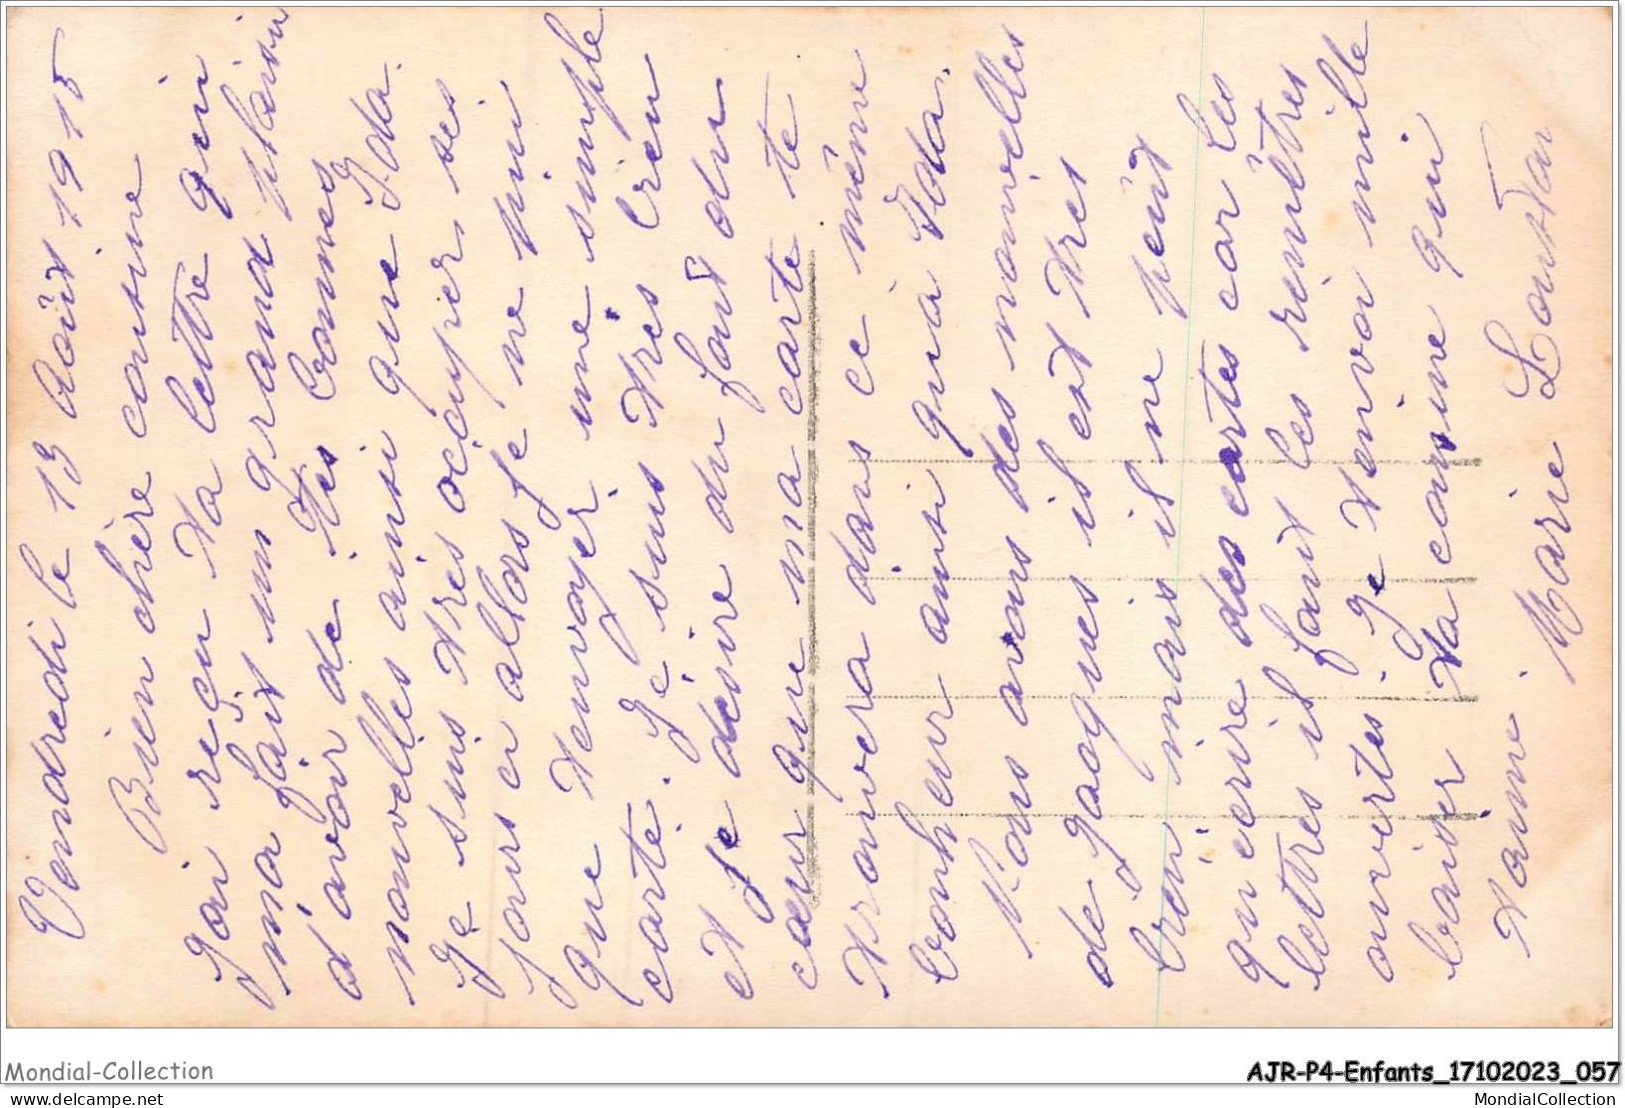 Vendredi le 13 Août 1915
Bien chère cousine
Jai reçu ta lettre qui
ma fait un grand plaisir
d'avoir de tes bonnes
nouvelles ainsi que Ida.
Je suis très ocuper ses
jours ci allors je ne pui
que tenvoyer une simple
carte. Je suis très bien
et je désire du fond du
cœur que ma carte te
trouvera dans ce même
bonheur ainsi qua Ida.
Nous avons des nouvelles
de jaques il est très
bien mais il ne peut
qu ecrire des cartes car les
lettres il faut les remêttres
ouvertes. Je tenvoi mille
baiser ta cousine qui
taime. Marie
Mondial-Collection
AJR-P4-Enfants_17102023_057
delcampe.net
MondialCollection